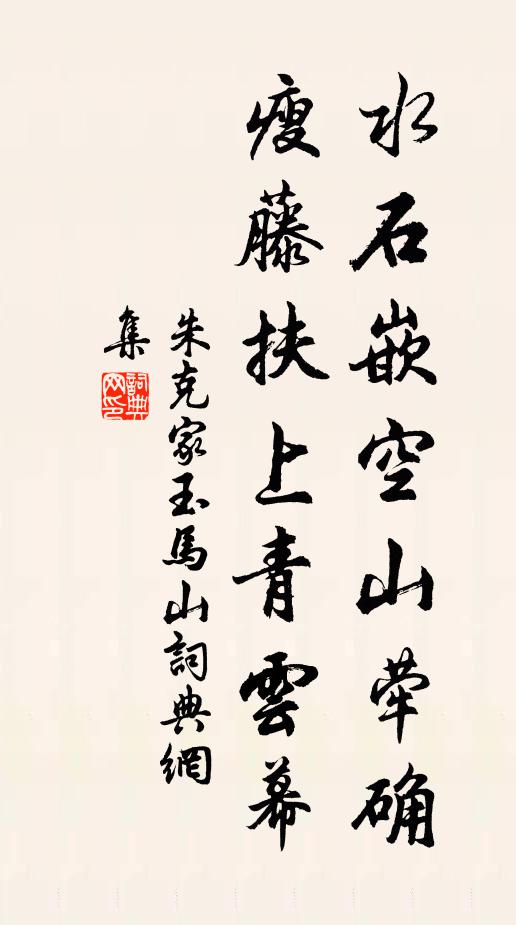 水石嵌空山犖确
瘦藤扶上青雲幕
朱克家玉馬山詞典網
集
詞典网印